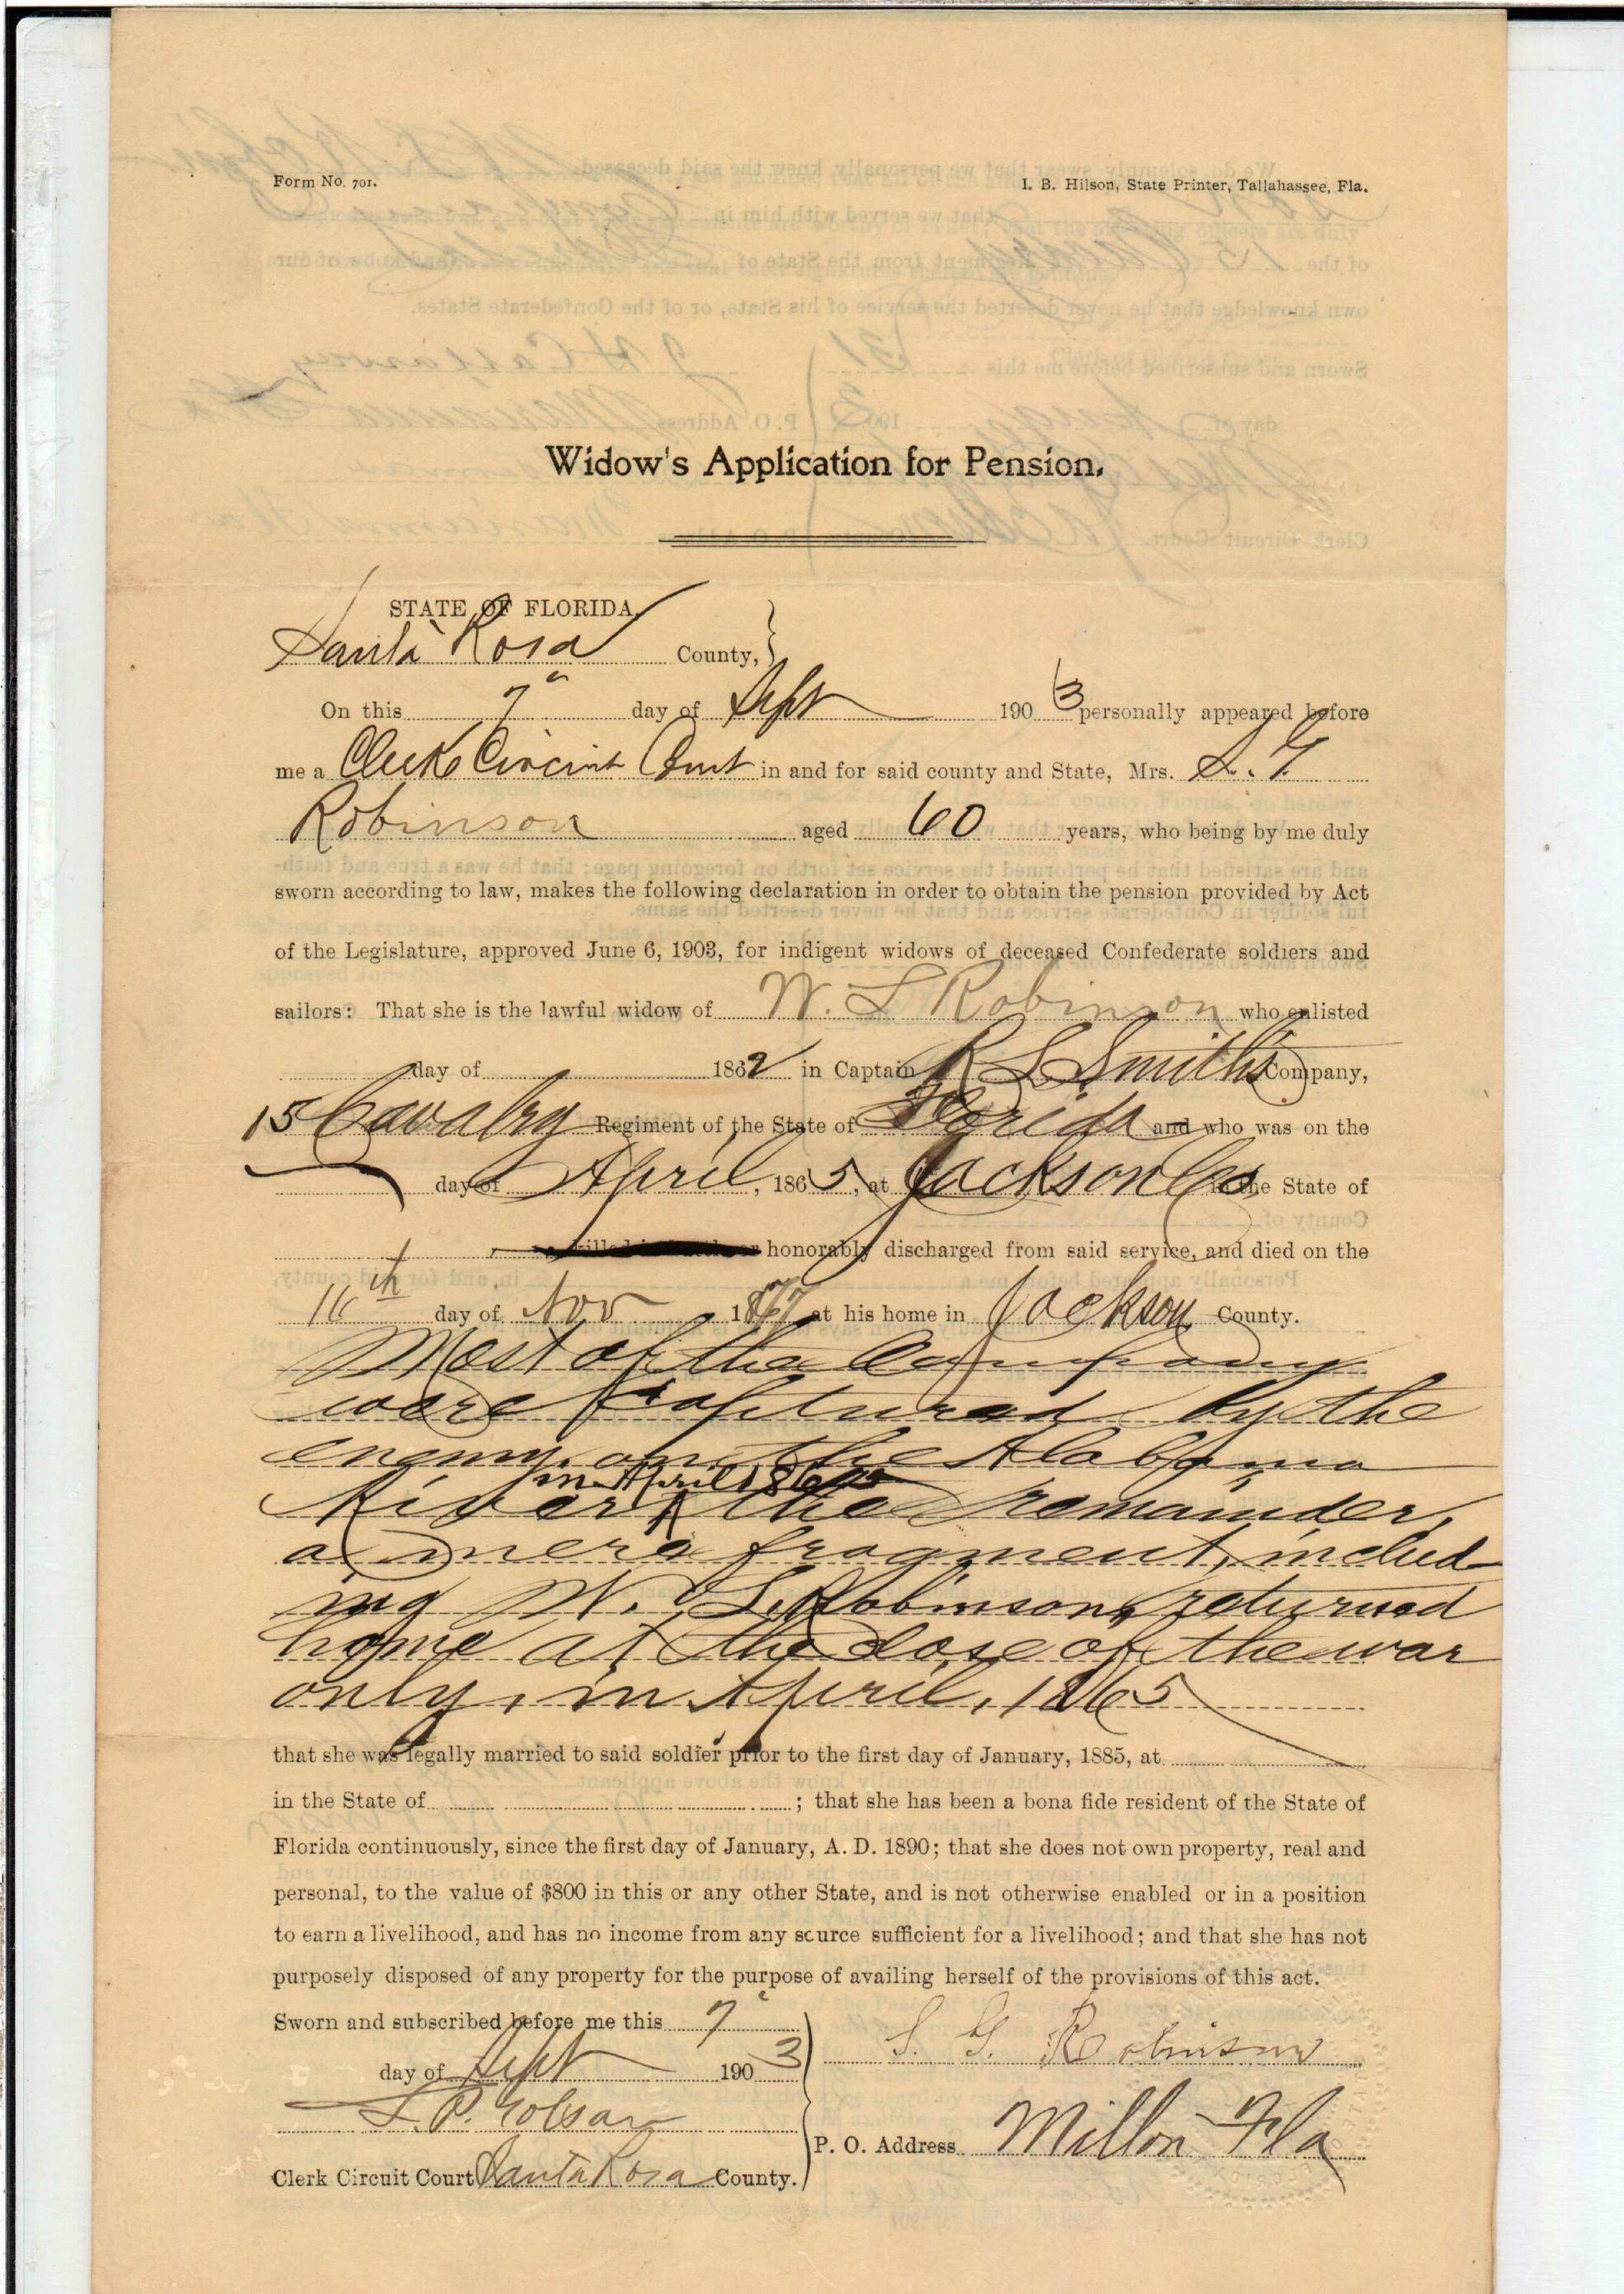 Form No. 701.
I. B. Hilson, State Printer, Tallahassee, Fla.
Widow's Application for Pension.
STATE OF FLORIDA,
Santa Rosa County,
On this 7" day of Sept 1903 personally appeared before
me a Clerk Circuit Court in and for said county and State, Mrs. S. G.
Robinson aged 60 years, who being by me duly
sworn according to law, makes the following declaration in order to obtain the pension provided by Act
of the Legislature, approved June 6, 1903, for indigent widows of deceased Confederate soldiers and
sailors: That she is the lawful widow of W. L Robinson who enlisted
day of 1862 in Captain R L Smith's Company,
15 Cavalry Regiment of the State of Florida and who was on the
day of April, 1865, at Jackson Co in the State of
honorably discharged from said service, and died on the
16th day of Nov 1877 at his home in Jackson County.
Most of the Company
were captured by the
enemy on the Alabama
River in April 1865 the remainder,
a mere fragment, includ-
ing W. L. Robinson, returned
home at the close of the war
only, in April, 1865
that she was legally married to said soldier prior to the first day of January, 1885, at
in the State of ; that she has been a bona fide resident of the State of
Florida continuously, since the first day of January, A. D. 1890; that she does not own property, real and
personal, to the value of $800 in this or any other State, and is not otherwise enabled or in a position
to earn a livelihood, and has no income from any source sufficient for a livelihood; and that she has not
purposely disposed of any property for the purpose of availing herself of the provisions of this act.
Sworn and subscribed before me this 7"
day of Sept 1903
S. G. Robinson
P. O. Address Milton Fla
Clerk Circuit Court Santa Rosa County.